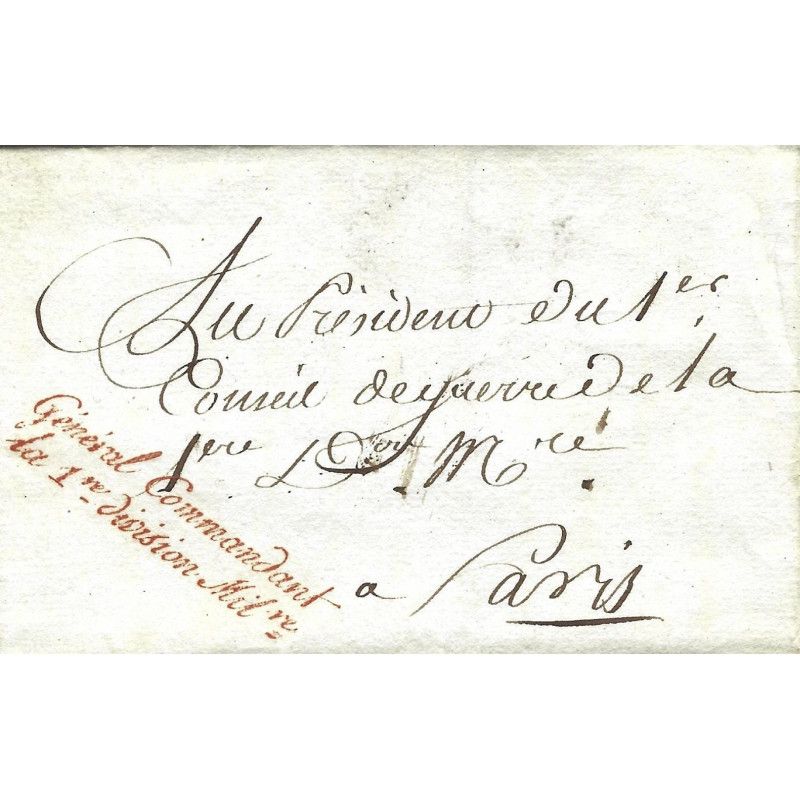 Au Président du 1er
Conseil de guerre de la
1ere Don Mre
a Paris
Général Commandant
la 1re division Milre